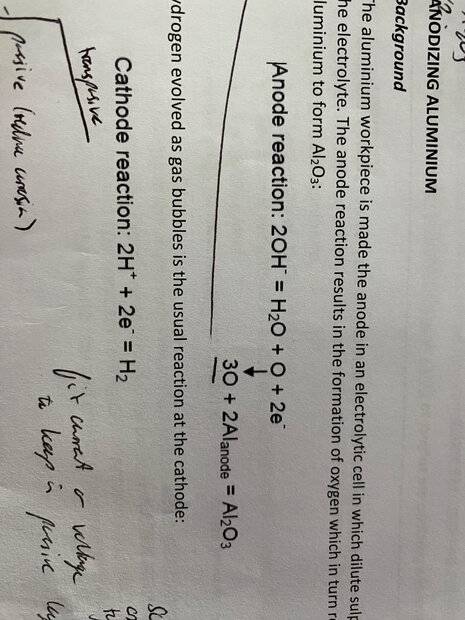 ANODIZING ALUMINIUM
Background
The aluminium workpiece is made the anode in an electrolytic cell in which dilute sulp
he electrolyte. The anode reaction results in the formation of oxygen which in turn r
luminium to form Al₂O₃:
Anode reaction: 2OH⁻ = H₂O + O + 2e⁻
3O + 2Al anode = Al₂O₃
ydrogen evolved as gas bubbles is the usual reaction at the cathode:
Cathode reaction: 2H⁺ + 2e⁻ = H₂
transpassive
passive (reduce corrosion)
fix current or voltage
to keep in passive